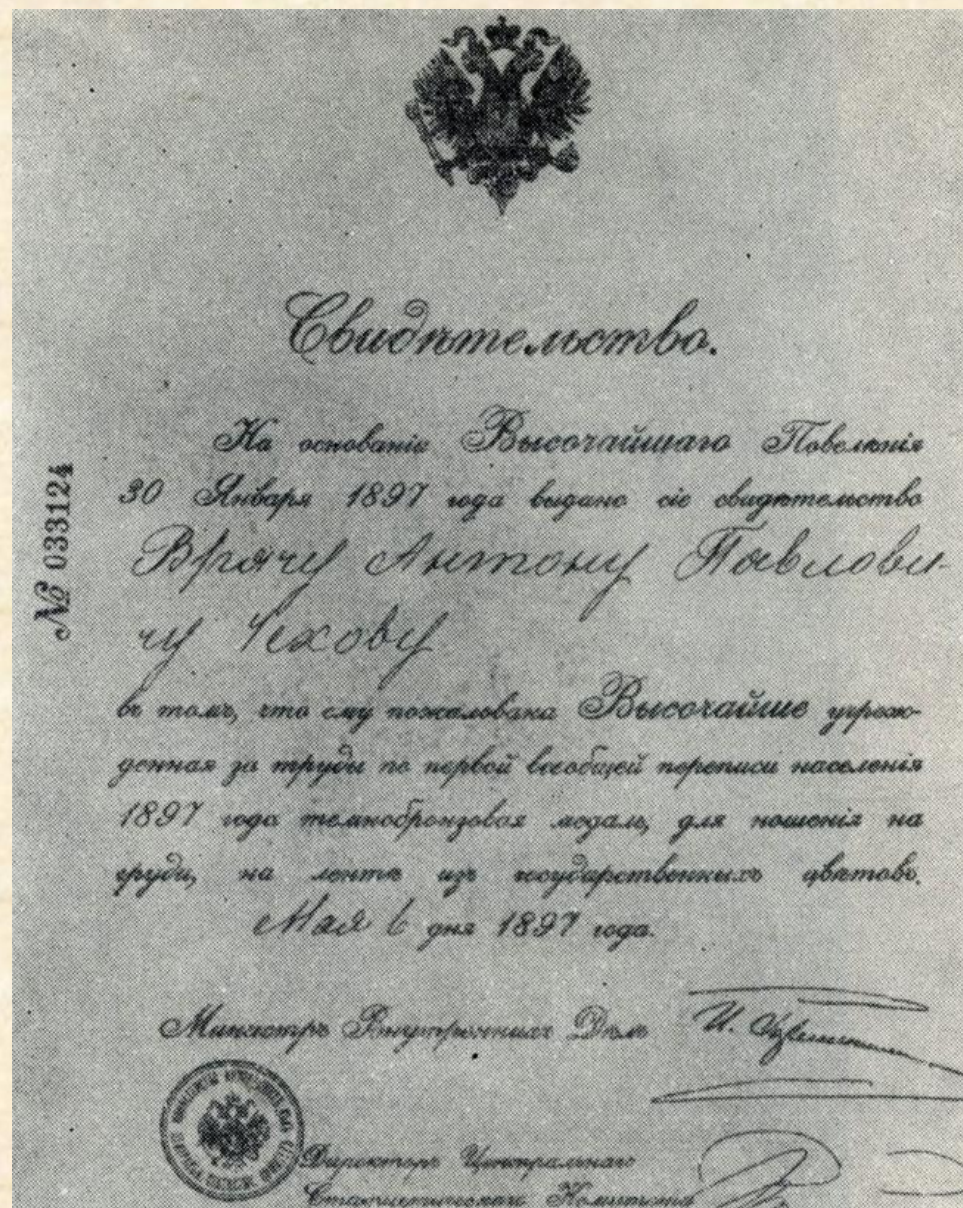 № 033124
Свидѣтельство.
На основаніи Высочайшаго Повелѣнія
30 Января 1897 года выдано сіе свидѣтельство
Врачу Антону Павлови-
чу Чехову
въ томъ, что ему пожалована Высочайше учреж-
денная за труды по первой всеобщей переписи населенія
1897 года темнобронзовая медаль, для ношенія на
груди, на лентѣ изъ государственныхъ цвѣтовъ.
Мая 6 дня 1897 года.
Министръ Внутреннихъ Дѣлъ
Директоръ Центральнаго
Статистическаго Комитета